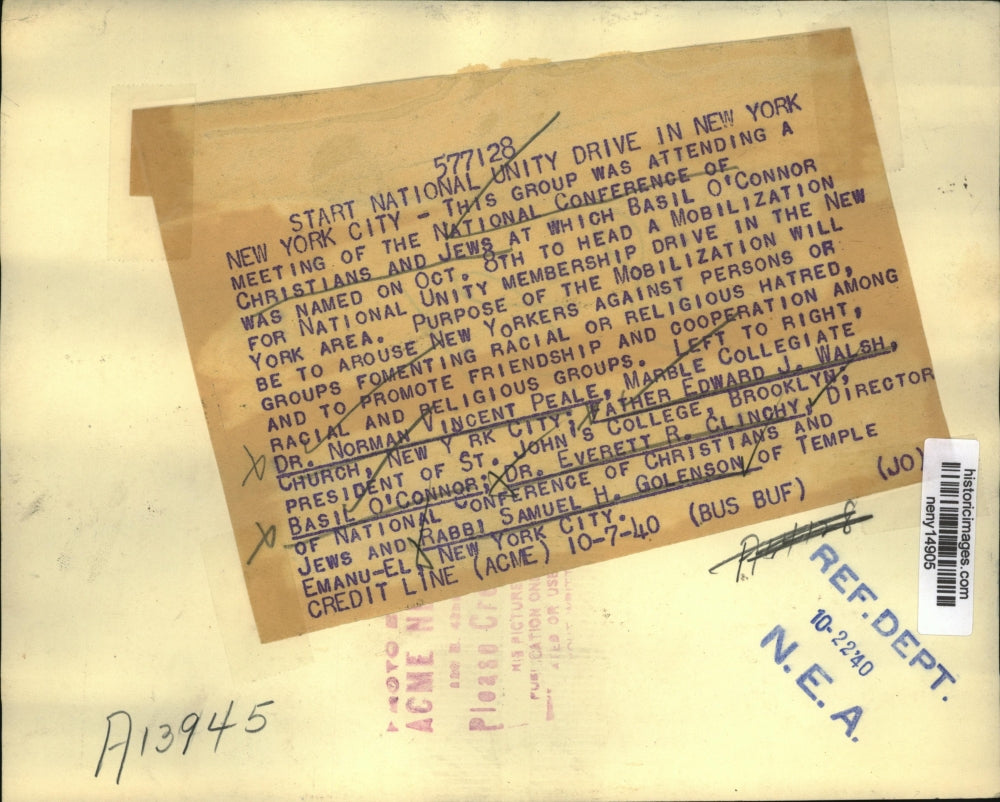 577128
START NATIONAL UNITY DRIVE IN NEW YORK
NEW YORK CITY - THIS GROUP WAS ATTENDING A
MEETING OF THE NATIONAL CONFERENCE OF
CHRISTIANS AND JEWS AT WHICH BASIL O'CONNOR
WAS NAMED ON OCT. 8TH TO HEAD A MOBILIZATION
FOR NATIONAL UNITY MEMBERSHIP DRIVE IN THE NEW
YORK AREA. PURPOSE OF THE MOBILIZATION WILL
BE TO AROUSE NEW YORKERS AGAINST PERSONS OR
GROUPS FOMENTING RACIAL OR RELIGIOUS HATRED,
AND TO PROMOTE FRIENDSHIP AND COOPERATION AMONG
RACIAL AND RELIGIOUS GROUPS. LEFT TO RIGHT,
DR. NORMAN VINCENT PEALE, MARBLE COLLEGIATE
CHURCH, NEW Y RK CITY; FATHER EDWARD J. WALSH,
PRESIDENT OF ST. JOHN'S COLLEGE, BROOKLYN,
BASIL O'CONNOR; DR. EVERETT R. CLINCHY, DIRECTOR
OF NATIONAL CONFERENCE OF CHRISTIANS AND
JEWS AND RABBI SAMUEL H. GOLENSON OF TEMPLE
EMANU-EL, NEW YORK CITY.
CREDIT LINE (ACME) 10-7-40 (BUS BUF) (JO)
historicimages.com
neny14905
REF. DEPT.
10-22-40
N. E. A.
ACME
Please
A13945